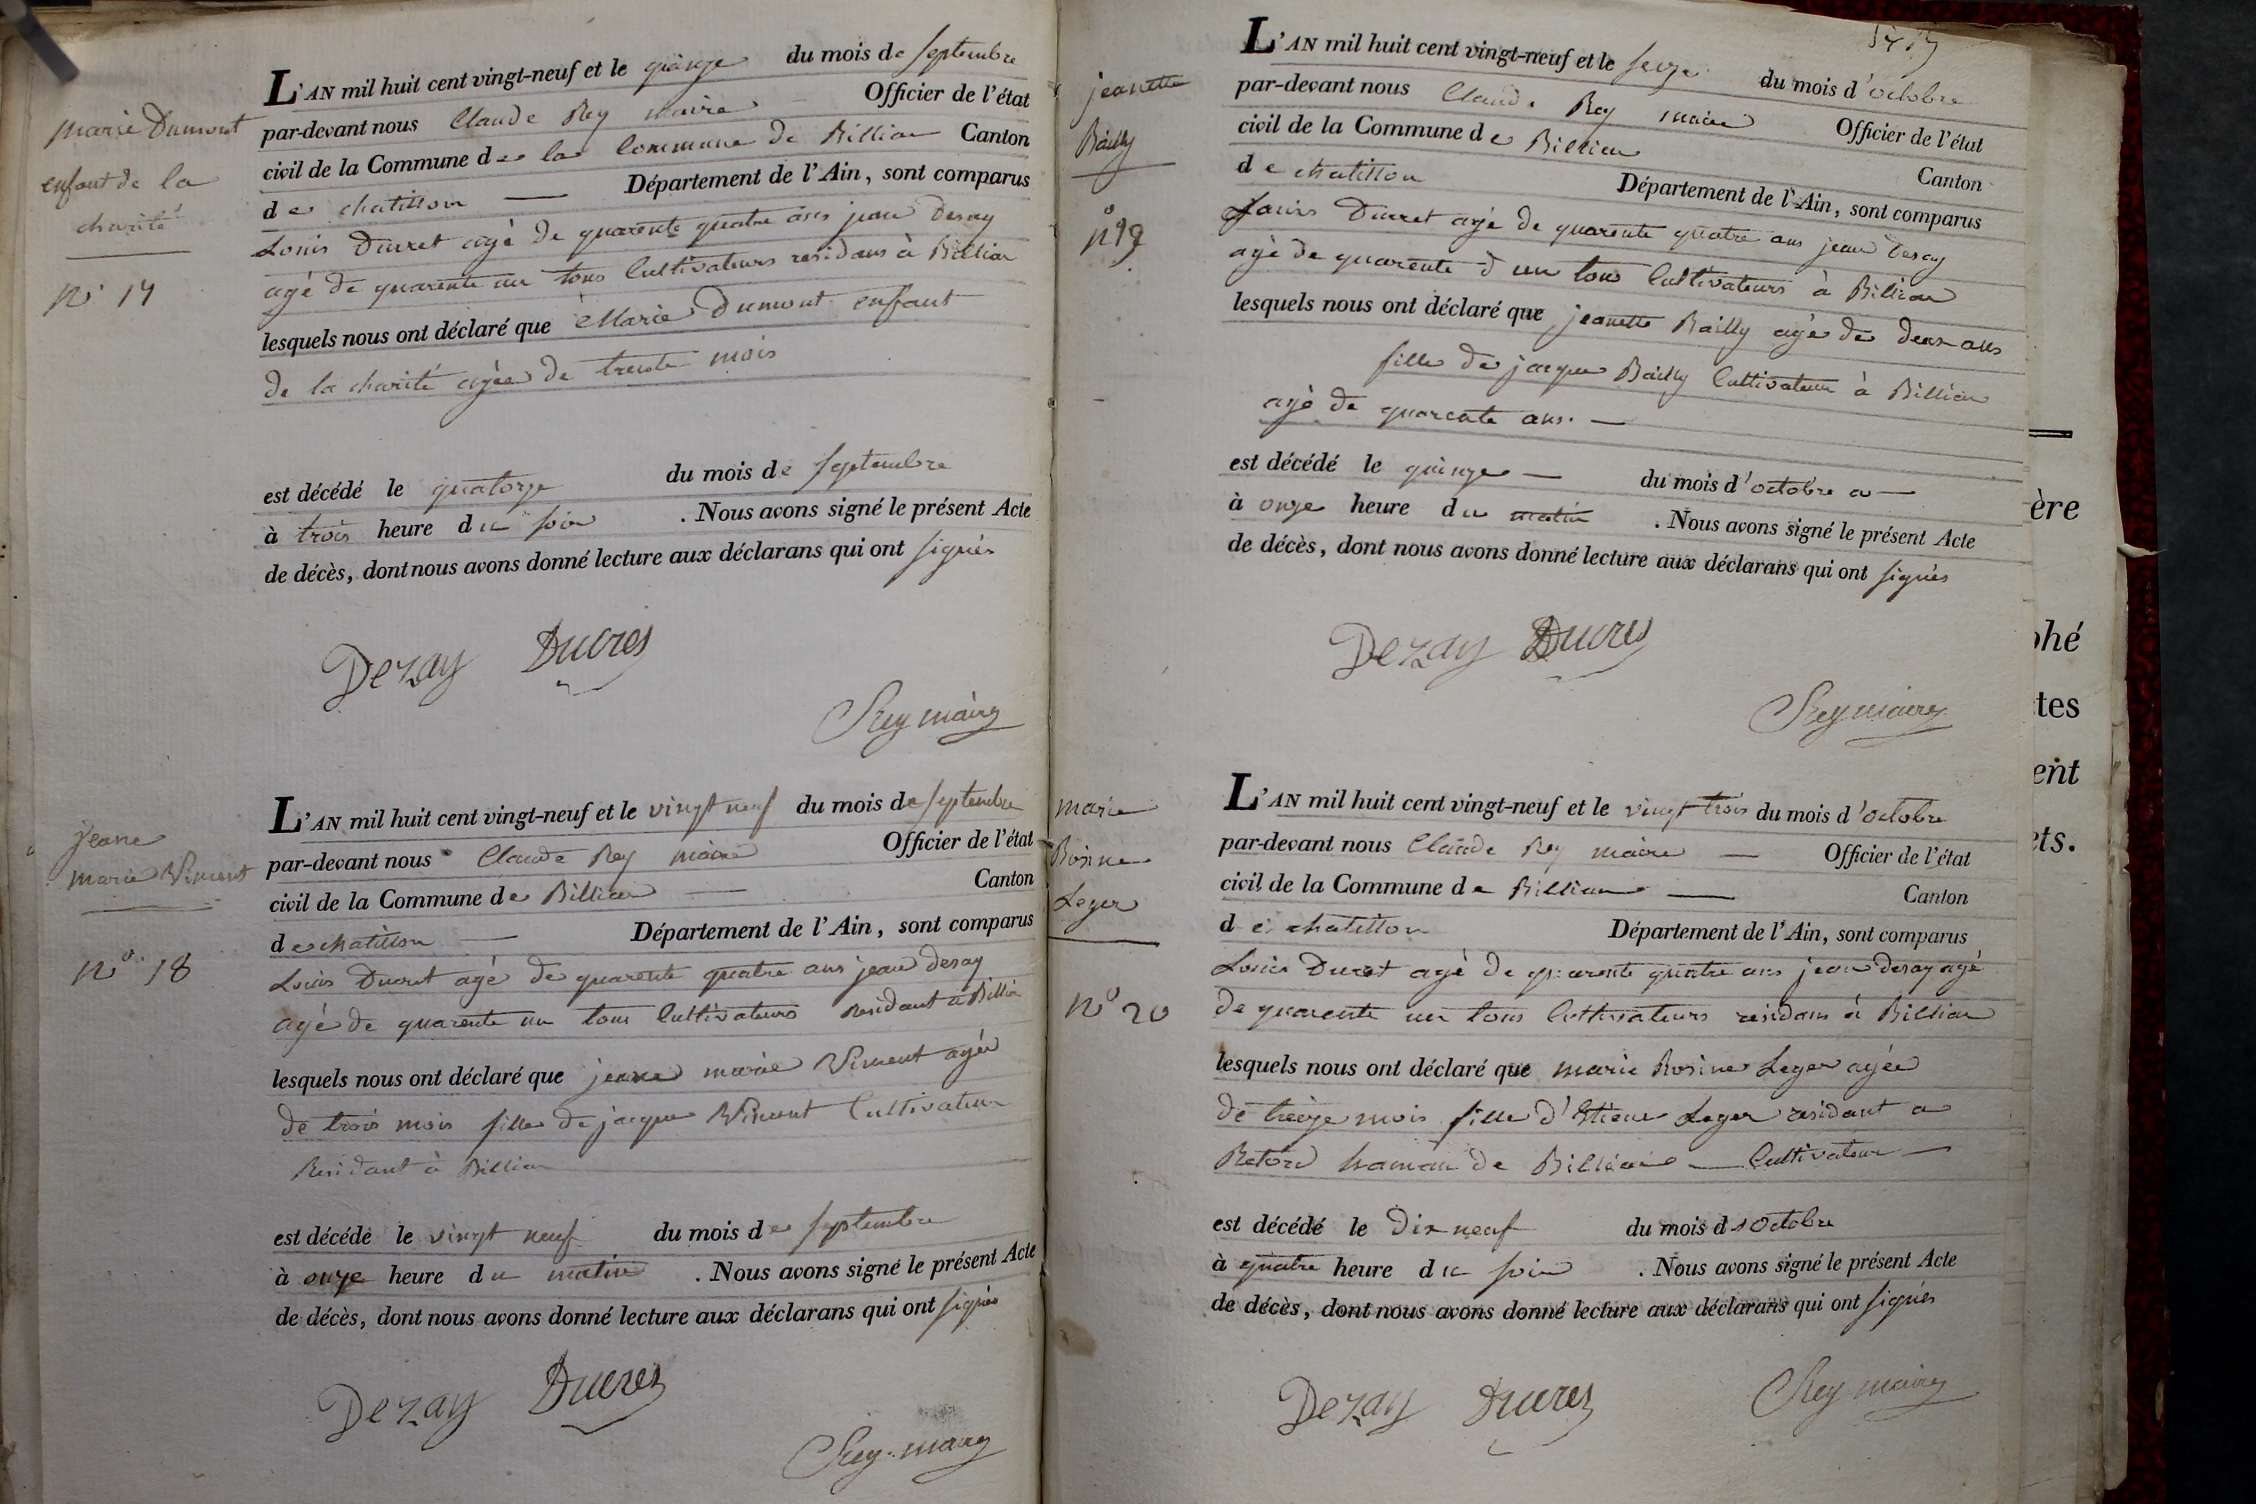 marie Dumont
enfant de la
charité
n° 17
L'AN mil huit cent vingt-neuf et le quinze du mois de septembre
par-devant nous Claude Rey maire Officier de l'état
civil de la Commune de la Commune de Billiat Canton
de chatillon — Département de l'Ain, sont comparus
Louis Ducret agé de quarente quatre ans jean Desay
agé de quarente un tous Cultivateurs residans à Billiat
lesquels nous ont déclaré que Marie Dumont enfant
de la charité agée de trente mois
est décédé le quatorze du mois de septembre
à trois heure du soir . Nous avons signé le présent Acte
de décès, dont nous avons donné lecture aux déclarans qui ont signés
Dezay Ducres
Rey maire
jeane
marie Vincent
n° 18
L'AN mil huit cent vingt-neuf et le vingt neuf du mois de septembre
par-devant nous Claude Rey maire Officier de l'état
civil de la Commune de Billiat — Canton
de chatillon — Département de l'Ain, sont comparus
Louis Ducret agé de quarente quatre ans jean desay
agé de quarente un tous Cultivateurs Residant a Billia
lesquels nous ont déclaré que jeane marie Vincent agée
de trois mois fille de jacque Vincent Cultivateur
Residant à Billiat
est décédé le vingt neuf du mois de septembre
à onze heure du matin . Nous avons signé le présent Acte
de décès, dont nous avons donné lecture aux déclarans qui ont signés
Dezay Ducres
Rey maire
jeanette
Bailly
n° 19
L'AN mil huit cent vingt-neuf et le seize du mois d'octobre
par-devant nous Claude Rey maire Officier de l'état
civil de la Commune de Billiat Canton
de chatillon Département de l'Ain, sont comparus
Louis Ducret agé de quarente quatre ans jean Desay
agé de quarente d un tous Cultivateurs à Billiat
lesquels nous ont déclaré que jeanette Bailly agé de deux ans
fille de jacque Bailly Cultivateur à Billiat
agé de quarente ans. —
est décédé le quinze — du mois d'octobre a —
à onze heure du matin . Nous avons signé le présent Acte
de décès, dont nous avons donné lecture aux déclarans qui ont signés
Dezay Ducres
Rey maire
marie
Rosine
Leger
n° 20
L'AN mil huit cent vingt-neuf et le vingt trois du mois d'octobre
par-devant nous Claude Rey maire — Officier de l'état
civil de la Commune de Billiat — Canton
de chatillon Département de l'Ain, sont comparus
Louis Ducret agé de quarente quatre ans jean desay agé
de quarente un tous Cultivateurs residans à Billiat
lesquels nous ont déclaré que marie Rosine Leger agée
de treize mois fille d'Etiene Leger residant a
Retord hamau de Billiat — Cultivateur —
est décédé le Dix neuf du mois d'octobre
à quatre heure du soir . Nous avons signé le présent Acte
de décès, dont nous avons donné lecture aux déclarans qui ont signés
Dezay Ducres
Rey maire
ère
phé
tes
ent
ets.